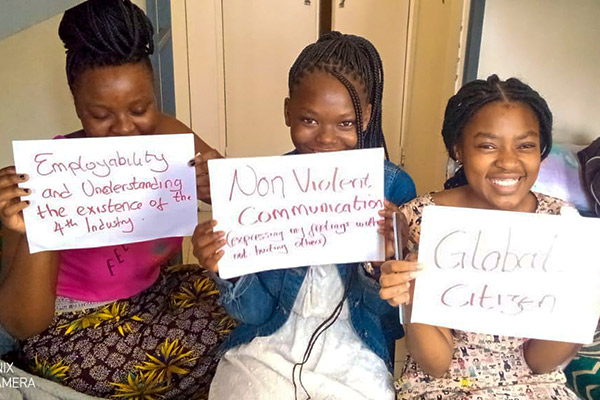 Employability
and Understanding
the existence of the
4th Industry.
Non Violent
Communication
(expressing my feelings without
out hurting others)
Global
Citizen
FE
NIX
AMERA